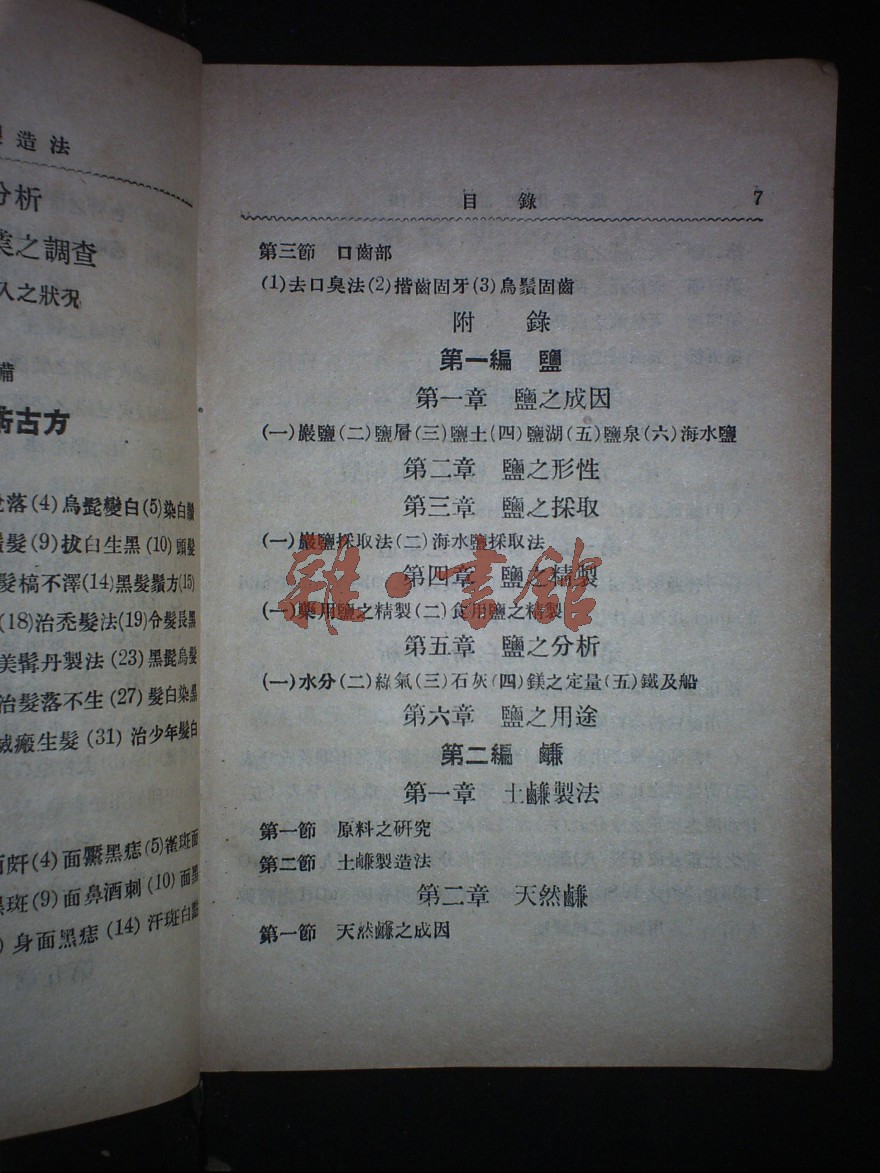 造法
分析
業之調查
入之狀況
備
術古方
落(4)烏髭變白(5)染白鬚
髮(9)拔白生黑(10)頭髮
髮槁不澤(14)黑髮鬚方(15)
(18)治禿髮法(19)令髮長黑
美髯丹製法(23)黑髭烏髮
治髮落不生(27)髮白染黑
滅瘢生髮(31)治少年髮白
面皯(4)面黶黑痣(5)雀斑面
黑斑(9)面鼻酒刺(10)面黑
身面黑痣(14)汗斑白
目錄 7
第三節 口齒部
(1)去口臭法(2)揩齒固牙(3)烏鬚固齒
附錄
第一編 鹽
第一章 鹽之成因
(一)巖鹽(二)鹽層(三)鹽土(四)鹽湖(五)鹽泉(六)海水鹽
第二章 鹽之形性
第三章 鹽之採取
(一)巖鹽採取法(二)海水鹽採取法
第四章 鹽之精製
(一)藥用鹽之精製(二)食用鹽之精製
第五章 鹽之分析
(一)水分(二)綠氣(三)石灰(四)鎂之定量(五)鐵及船
第六章 鹽之用途
第二編 鹻
第一章 土鹻製法
第一節 原料之研究
第二節 土鹻製造法
第二章 天然鹻
第一節 天然鹻之成因
雜·書館